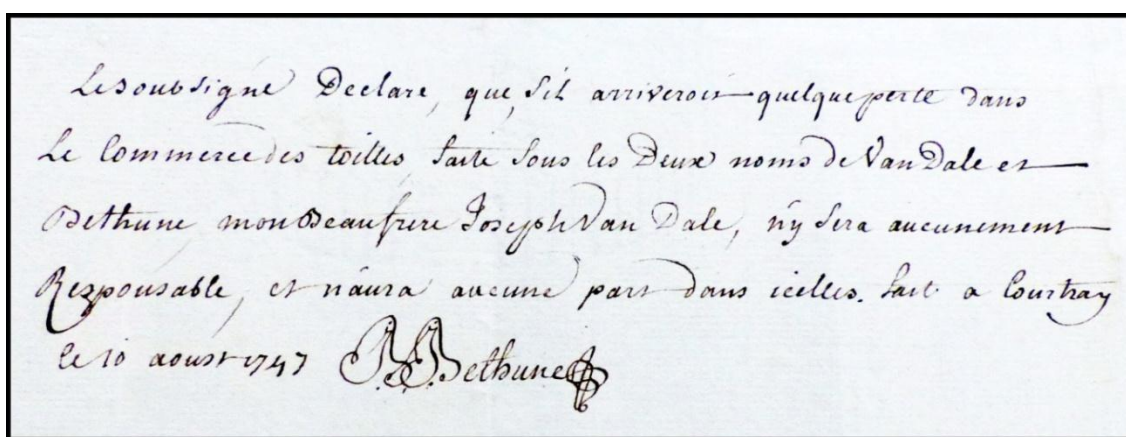 Le soubsigné Declare, que, S'il arriveroit quelque perte dans
Le Commerce des toilles, faite Sous les Deux noms de Van Dale et
Bethune, mon Beaufrere Joseph Van Dale, n'y Sera aucunement
Responsable, et n'aura aucune part dans icelles. fait a Courtray
le 10 aoust 1747 Bethune